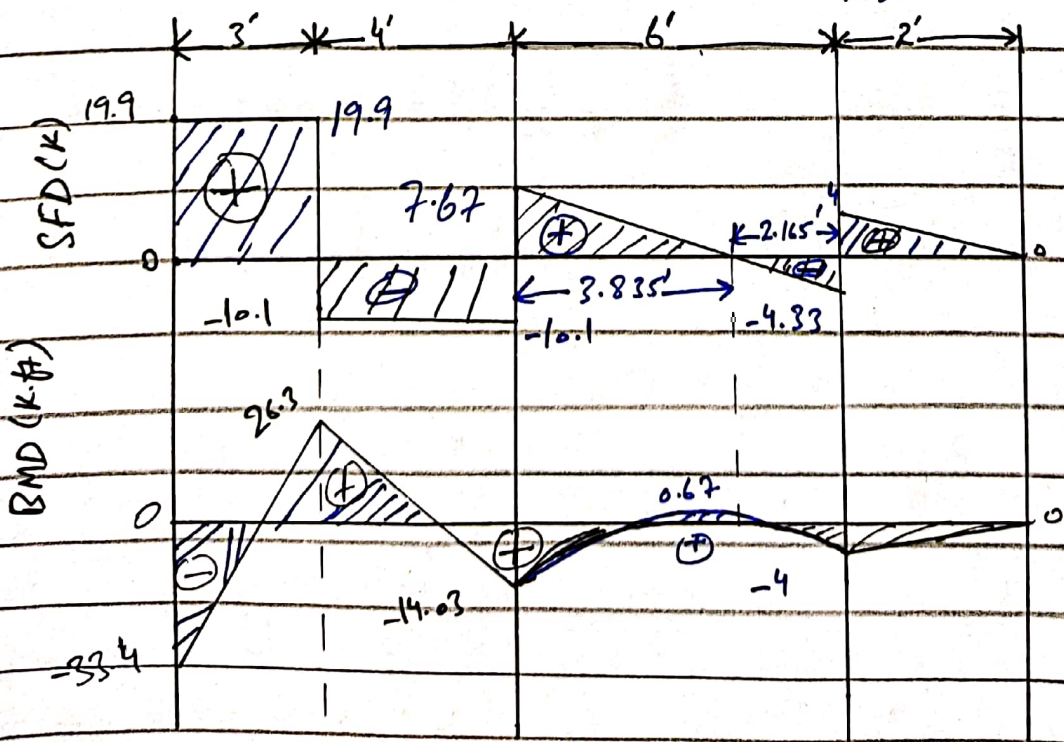 3' 4' 6' 2'
SFD (K)
19.9 19.9
+
7.67
+
2.165'
4
+
0 0
-
3.835'
-
-10.1 -10.1 -4.33
BMD (K.ft)
26.3
+
0.67
0 0
-
-
+
-4
-14.03
-33.4